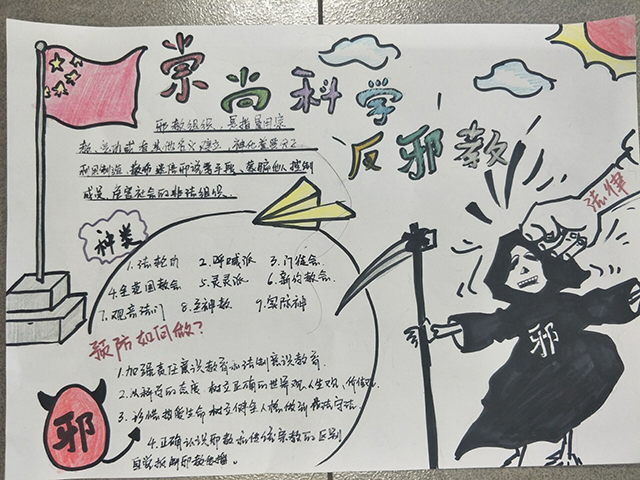 崇尚科学
反邪教
邪教组织，是指冒用宗
教、气功或者其他名义建立，神化首要分子
利用制造、散布迷信邪说等手段、蒙骗他人控制
成员、危害社会的非法组织。
法律
种类
1.法轮功 2.呼喊派 3.门徒会
4.全范围教会 5.灵灵派 6.新约教会
7.观音法门 8.主神教 9.实际神
预防如何做？
1.加强责任意识教育和法制意识教育
2.以科学的态度 树立正确的世界观、人生观、价值观
3.珍惜热爱生命 树立健全人格做到遵法守法
4.正确认识邪教和传统宗教的区别
自觉抵制邪教传播。
邪
邪